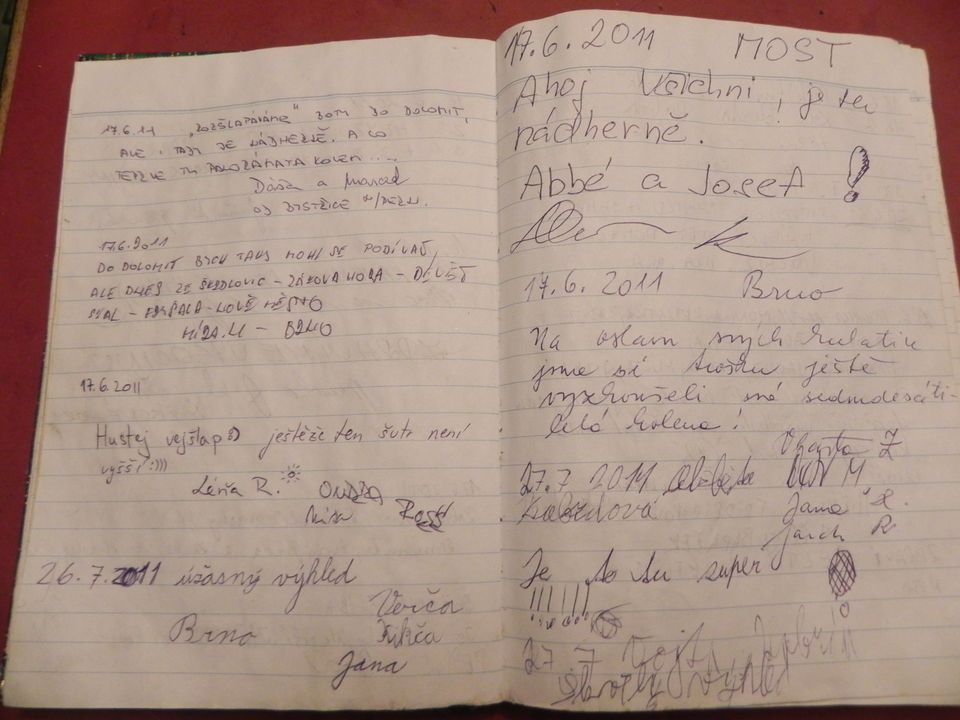 17.6.11 „ROZŠLAPÁVÁME" BOTY DO DOLOMIT,
ALE I TADY JE NÁDHERNĚ. A CO
TEPRVE TA PANORÁMATA KOLEM ....
Dáša a
OD BYSTŘICE N/PERN.
17.6.2011
DO DOLOMIT BYCH TAKY MOHL SE PODÍVAT,
ALE DNES ZE ŠKRDLOVIC – ŽÁKOVA HORA – DEVĚT
SKAL – – NOVÉ MĚSTO
– BRNO
17.6.2011
Hustej vejšlap :) ještěže ten šutr není
vyšší :)))
Léňa R. ONDRA
Míša
26.7.2011 úžasný výhled
Verča
Brno Kikča
Jana
17.6.2011 MOST
Ahoj všichni, je tu
nádherně.
Abbé a Josef !
17.6.2011 Brno
Na oslavu svých kulatin
jsme si trošku ještě
vyzkoušeli má sedmdesáti-
letá kolena!
Vlasta Z
27.7 2011
Jana
R
Je to tu super
!!!!!!
27.7 Vojta
výhled